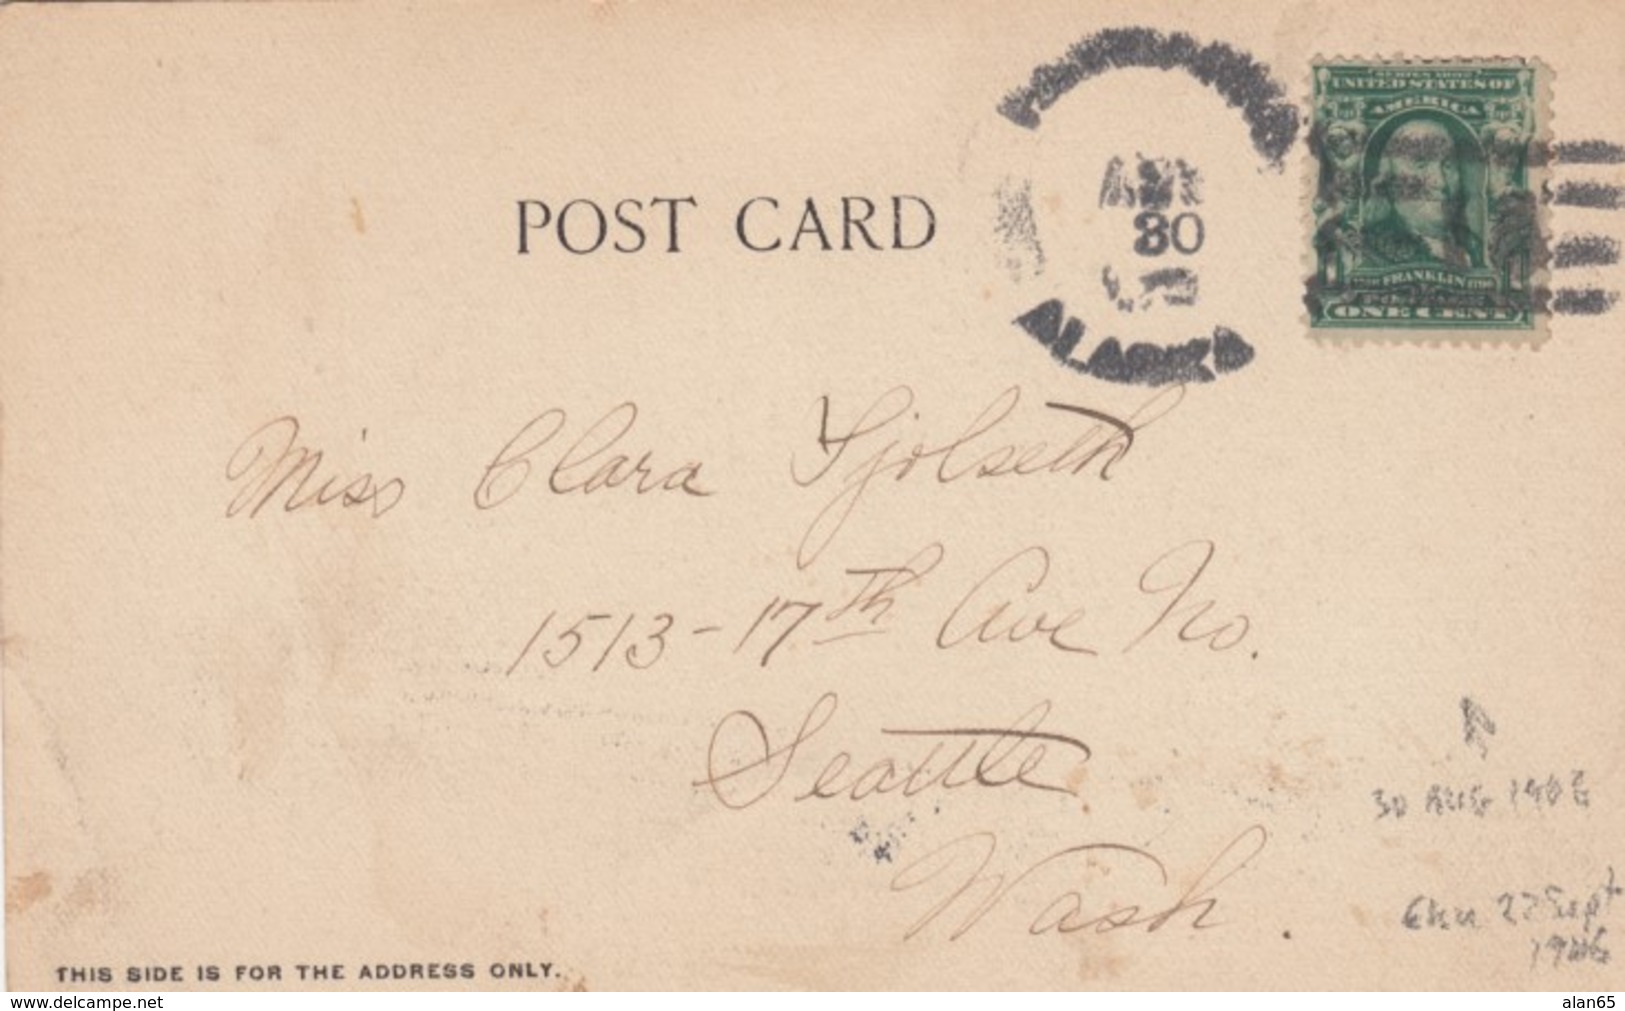 SERIES 1902
UNITED STATES OF
AMERICA
FRANKLIN
POSTAGE
ONE CENT
POST CARD
30
ALASKA
Miss Clara Fjolseth
1513-17th Ave No.
Seattle
Wash.
30 AUG 1906
EKU 27 Sept
1906
THIS SIDE IS FOR THE ADDRESS ONLY.
www.delcampe.net
alan65